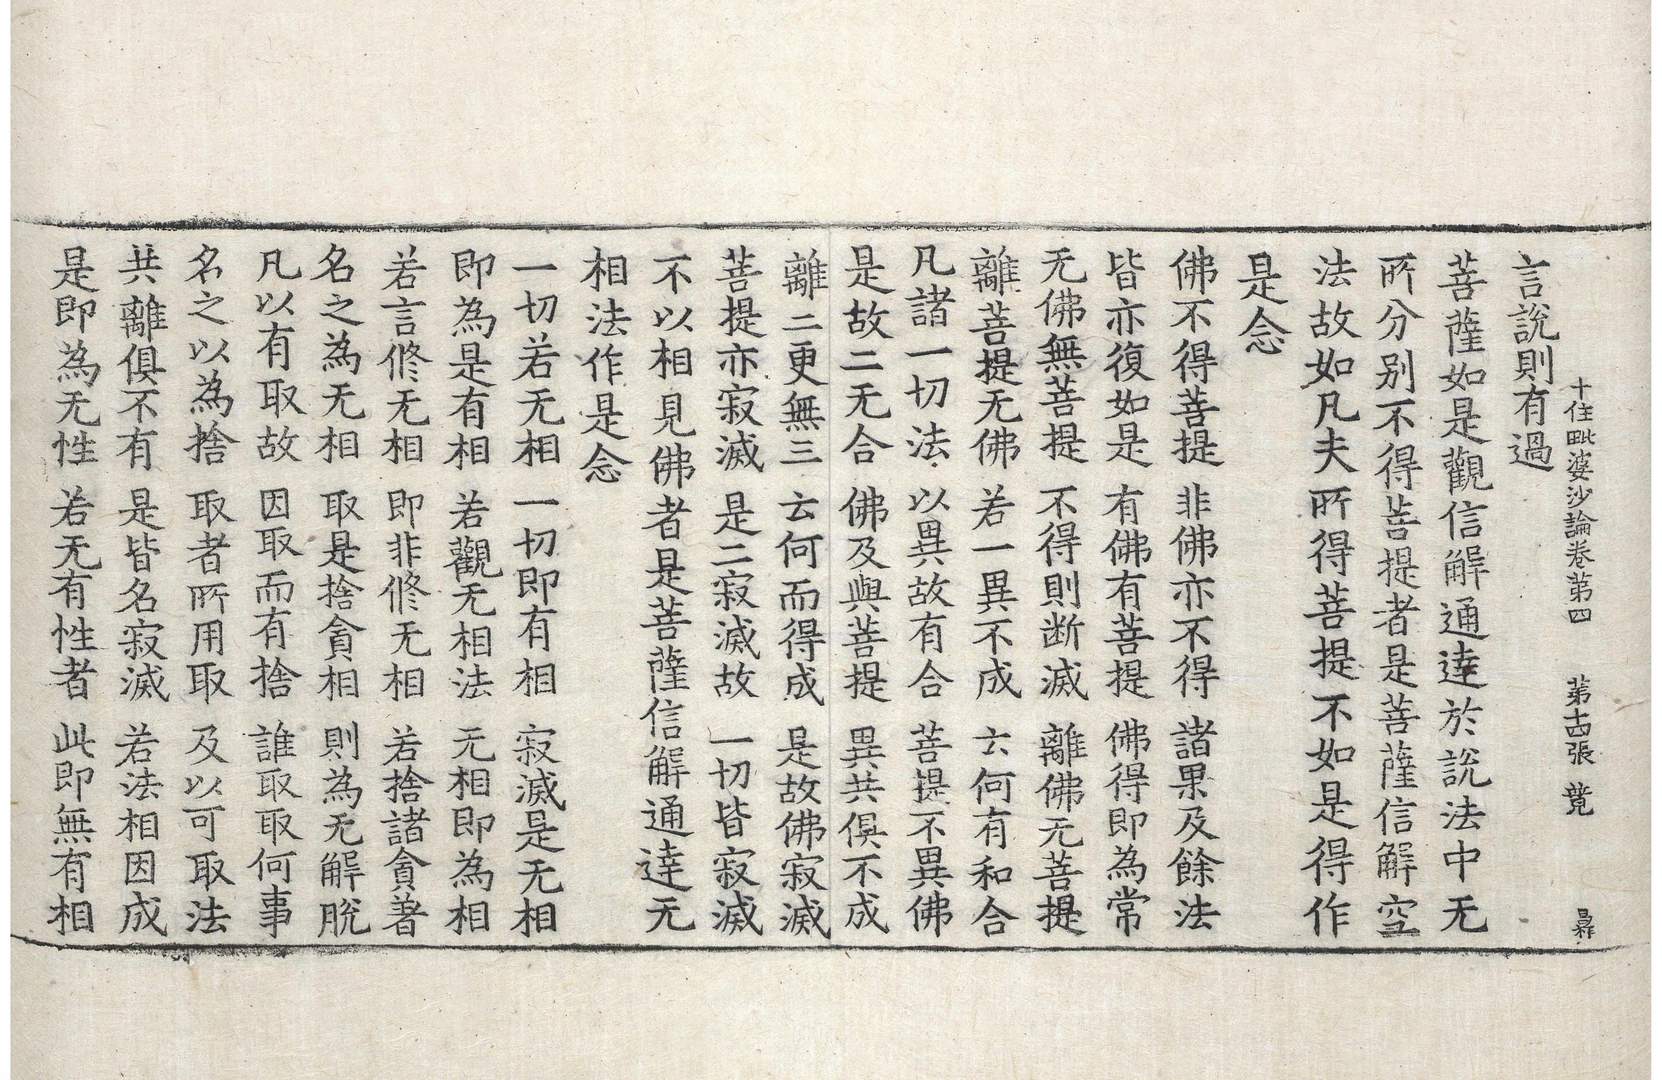 十住毗婆沙論卷第四　第十四張　競
言說則有過
菩薩如是觀信解通達於說法中无
所分别不得菩提者是菩薩信解空
法故如凡夫所得菩提不如是得作
是念
佛不得菩提　非佛亦不得　諸果及餘法
皆亦復如是　有佛有菩提　佛得即為常
无佛無菩提　不得則断滅　離佛无菩提
離菩提无佛　若一異不成　云何有和合
凡諸一切法　以異故有合　菩提不異佛
是故二无合　佛及與菩提　異共俱不成
離二更無三　云何而得成　是故佛寂滅
菩提亦寂滅　是二寂滅故　一切皆寂滅
不以相見佛者是菩薩信解通達无
相法作是念
一切若无相　一切即有相　寂滅是无相
即為是有相　若觀无相法　无相即為相
若言修无相　即非修无相　若捨諸貪著
名之為无相　取是捨貪相　則為无解脫
凡以有取故　因取而有捨　誰取取何事
名之以為捨　取者所用取　及以可取法
共離俱不有　是皆名寂滅　若法相因成
是即為无性　若无有性者　此即無有相